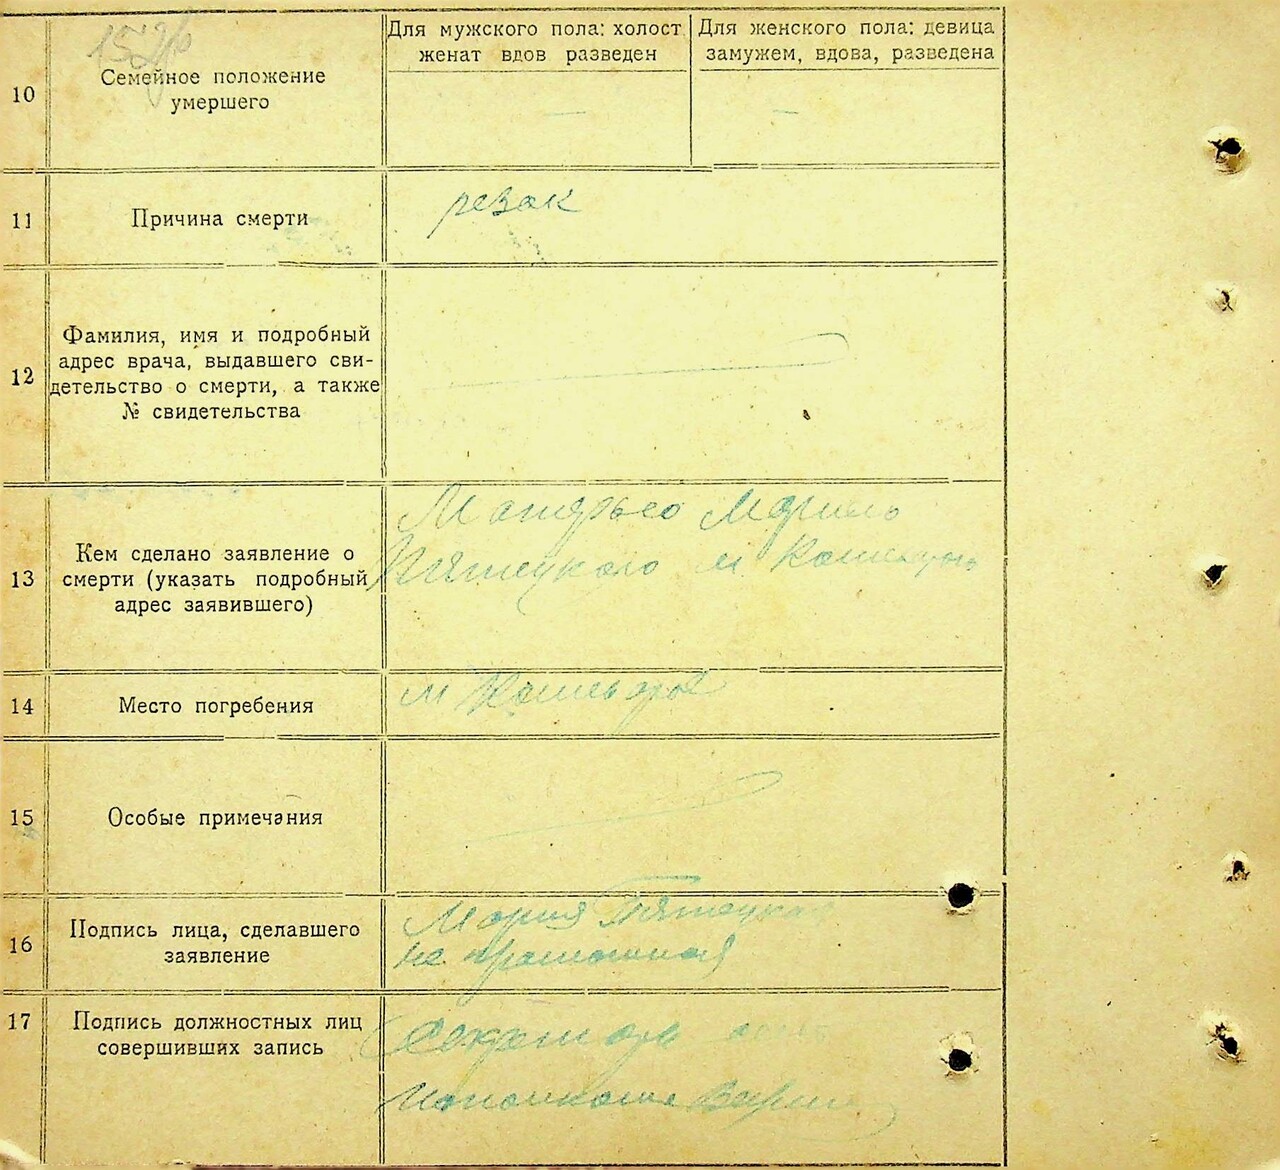 Для мужского пола: холост
женат вдов разведен
Для женского пола: девица
замужем, вдова, разведена
10
Семейное положение
умершего
—
—
11
Причина смерти
резак
12
Фамилия, имя и подробный
адрес врача, выдавшего сви-
детельство о смерти, а также
№ свидетельства
13
Кем сделано заявление о
смерти (указать подробный
адрес заявившего)
14
Место погребения
м
15
Особые примечания
16
Подпись лица, сделавшего
заявление
Мария Пятецкая
не грамотная
17
Подпись должностных лиц
совершивших запись
Секретарь